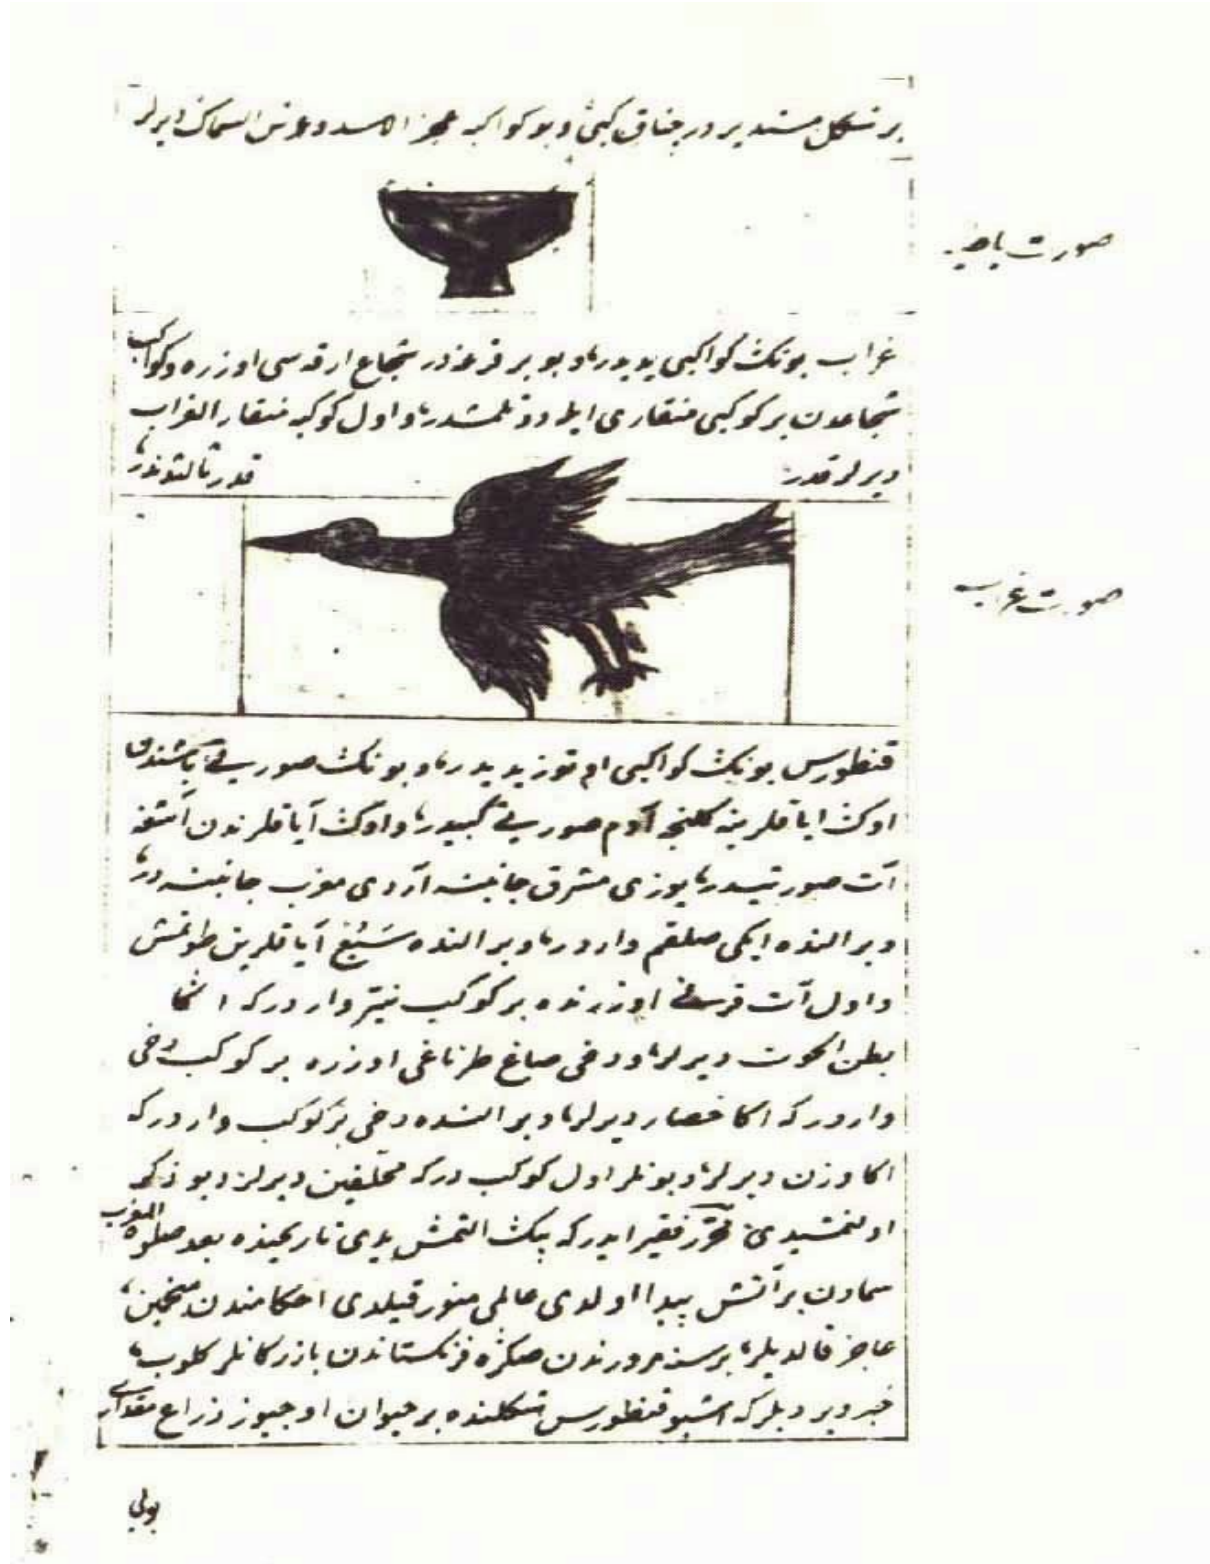 بر شكل مستدير در چناق كبى و بو كواكبه عجز الاسد و عرش السماك ديرلر
صورت باطيه
غراب بونك كواكبى يديدر و بو بر قرغه در شجاع ارقه سى اوزره و كواكب
شجاعدن بر كوكبى منقارى ايله دوتلمشدر و اول كوكبه منقار الغراب
ديرلر قدر قدر ثالثوندر
صورت غراب
قنطورس بونك كواكبى اوتوز يديدر و بونك صورتى باشندن
اوك اياقلرينه كلنجه آدم صورتى كبيدر و اوك آياقلرندن آشغه
آت صورتيدر يوزى مشرق جانبنه آردى مغرب جانبنه در
و بر النده ايكى صلقم واردر و بر النده سبع آياقلرين طوتمش
و اول آت قرنى اوزرنده بر كوكب نير واردركه اكا
بطن الحوت ديرلر و دخى صاغ طرناغى اوزره بر كوكب دخى
واردركه اكا حضار ديرلر و بر النده دخى بر كوكب واردركه
اكا وزن ديرلر و بونلر اول كوكب دركه محلفين ديرلر و بو ذكر
اولنمشيدى محرر فقير ايدركه بيك التمش يدى تاريخنده بعد صلوة المغرب
سمادن بر آتش پيدا اولدى عالمى منور قيلدى احكامندن منجمين
عاجز قالديلر بر سنه مرورندن صكره فرنكستاندن بازركانلر كلوب
خبر ويرديلركه اشبو قنطورس شكلنده بر حيوان اوچيوز ذراع مقدارى
بولى